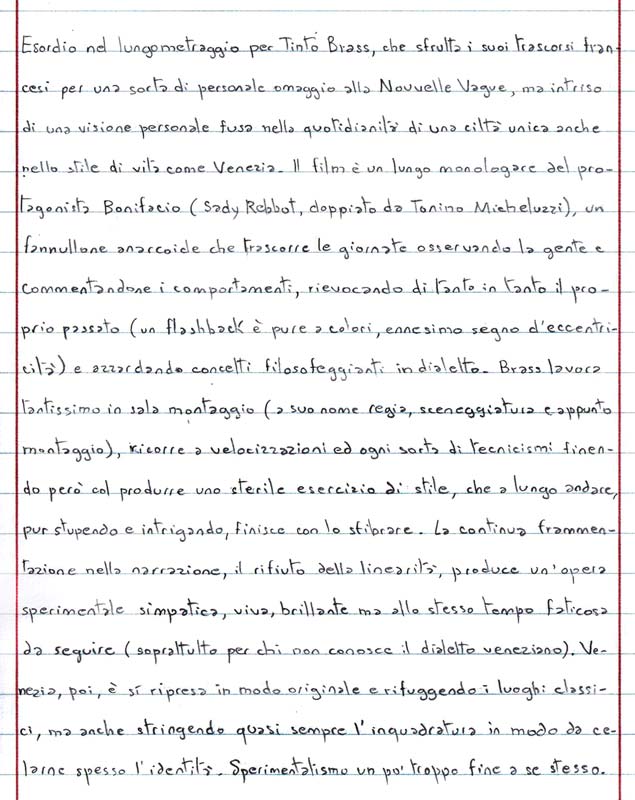 Esordio nel lungometraggio per Tinto Brass, che sfrutta i suoi trascorsi fran-
cesi per una sorta di personale omaggio alla Nouvelle Vague, ma intriso
di una visione personale fusa nella quotidianità di una città unica anche
nello stile di vita come Venezia. Il film è un lungo monologare del pro-
tagonista Bonifacio (Sady Rebbot, doppiato da Tonino Micheluzzi), un
fannullone anarcoide che trascorre le giornate osservando la gente e
commentandone i comportamenti, rievocando di tanto in tanto il pro-
prio passato (un flashback è pure a colori, ennesimo segno d'eccentri-
cità) e azzardando concetti filosofeggianti in dialetto. Brass lavora
tantissimo in sala montaggio (a suo nome regia, sceneggiatura e appunto
montaggio), ricorre a velocizzazioni ed ogni sorta di tecnicismi finen-
do però col produrre uno sterile esercizio di stile, che a lungo andare,
pur stupendo e intrigando, finisce con lo stibrare. La continua frammen-
tazione nella narrazione, il rifiuto della linearità, produce un'opera
sperimentale simpatica, viva, brillante ma allo stesso tempo faticosa
da seguire (soprattutto per chi non conosce il dialetto veneziano). Ve-
nezia, poi, è sì ripresa in modo originale e rifuggendo i luoghi classi-
ci, ma anche stringendo quasi sempre l'inquadratura in modo da ce-
larne spesso l'identità. Sperimentalismo un po' troppo fine a se stesso.